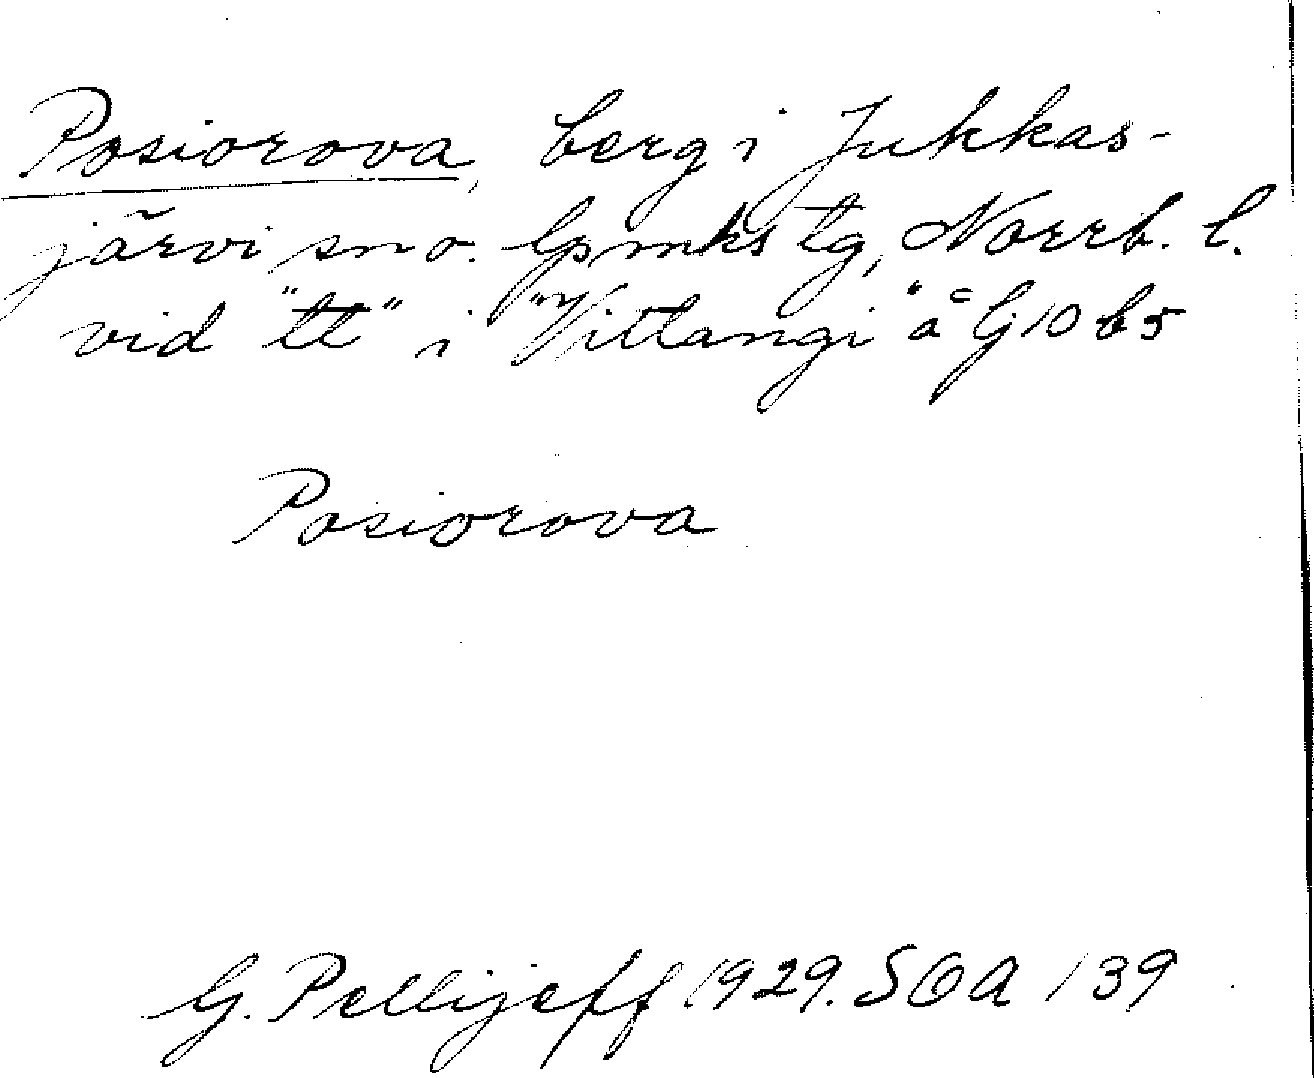 Posiorova, berg i Jukkas-
järvi sn o. lpmkstg, Norrb. l.
vid "tt" i "Vittangi" å Gj 10 b 5
Posiorova
G. Pellijeff 1929. SOA 139